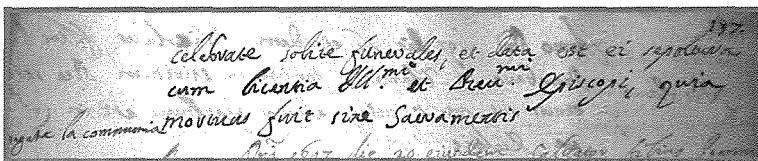 137.
celebrate solite funerales, et data est ei sepoltura
cum licentia Ill.mi et Reu.mi Episcopi, quia
mortuus fuit sine Sacramentis
la communia